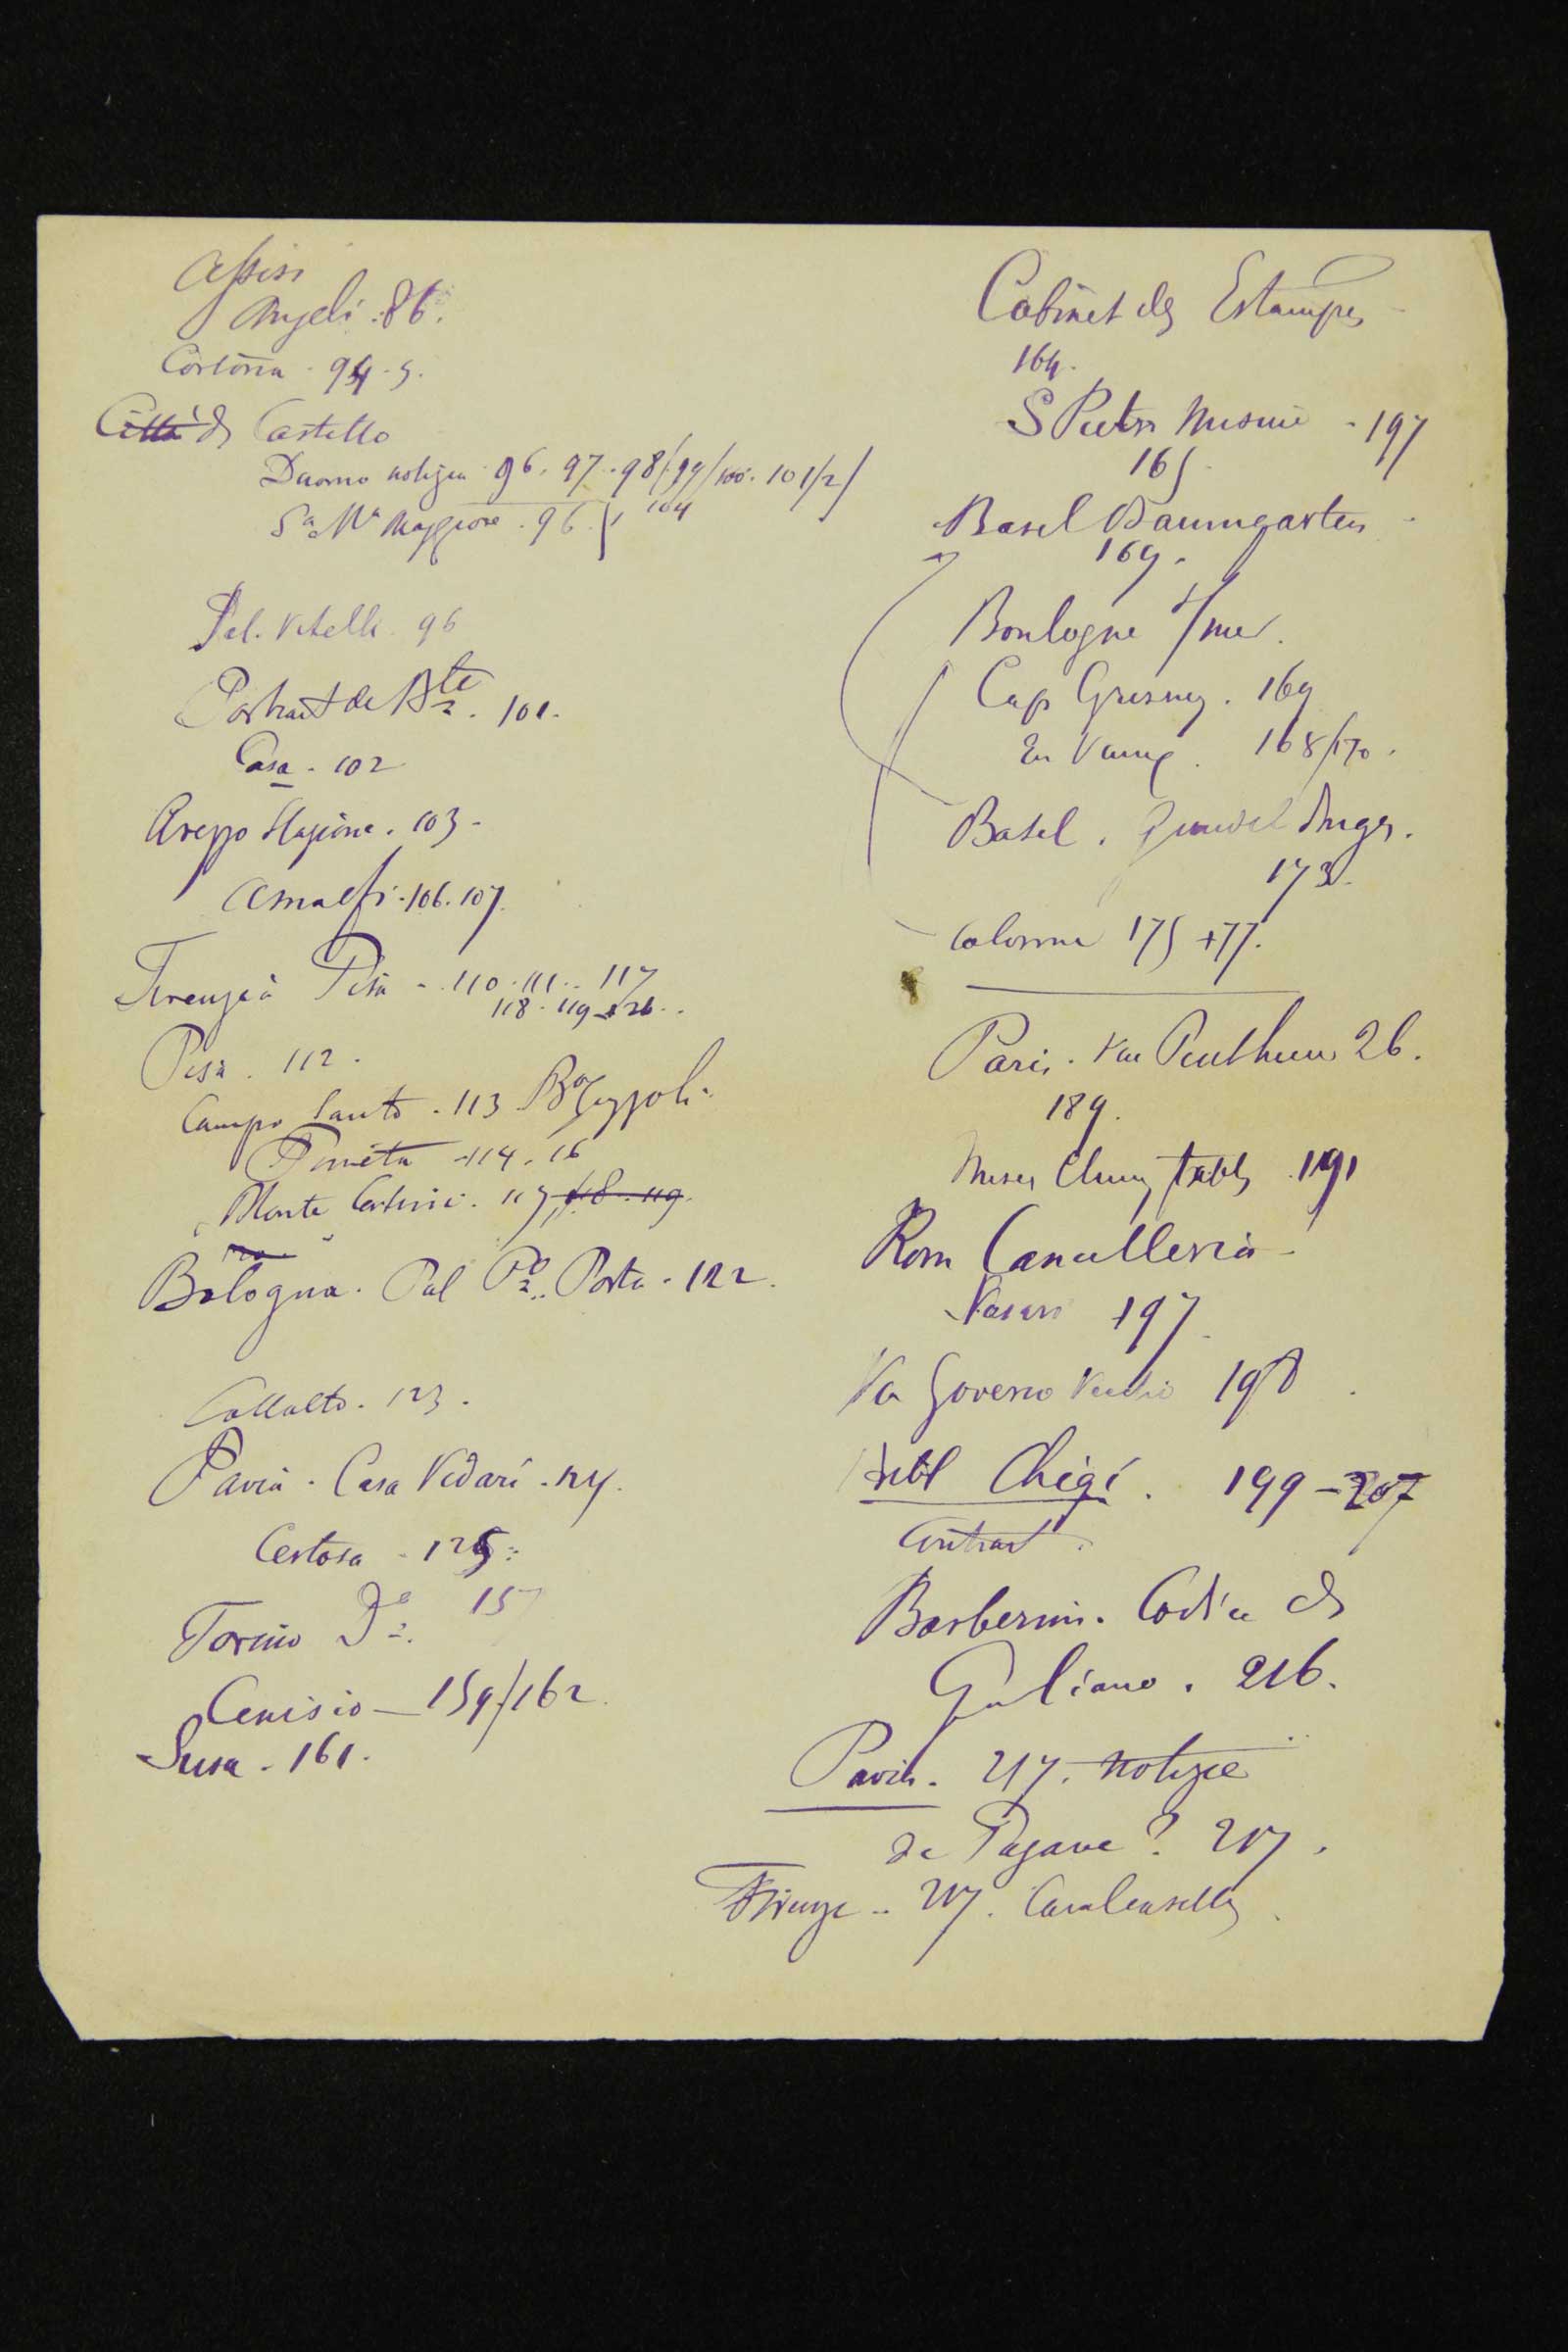 Assisi
Angeli. 86.
Cortona - 94-5.
Città di Castello
Duomo notizia 96. 97. 98/99/100. 101/2/
Sa Ma Maggiore. 96. 104
Pal. Vitelli 96
Portrait de Bte. 101.
Casa - 102
Arezzo Stazione. 103 -
Amalfi - 106. 107.
Firenze à Pisa - 110. 111 .. 117
118 - 119 - 126..
Pisa. 112.
Campo Santo - 113 Bo Gozzoli
Pineta - 114. 16
Monte 117 118. 119.
Bologna. Pal Po Porta - 122.
Collalto. 123.
Pavia. Casa Vidari - 124.
Certosa - 125
Torino Do. 157
Cenisio — 159/162.
Susa - 161.
Cabinet des Estampes
164.
S Pietro - 197
165.
Basel Baumgarten
169.
Boulogne s/mer.
Cap Grisnez. 169
168/170.
Basel.
173.
Colonna 175 177.
Paris. Rue Penthievre 26.
189.
Musee Cluny 191
Rom Cancelleria
Vasari 197
Via Governo Vecchio 198
Bibl Chigi. 199 - 207
Contrat.
Barberini. Codice di
Giuliano. 216.
Pavia. 217. notizie
de Pagave? 217.
Firenze - 217. Cavalcaselle